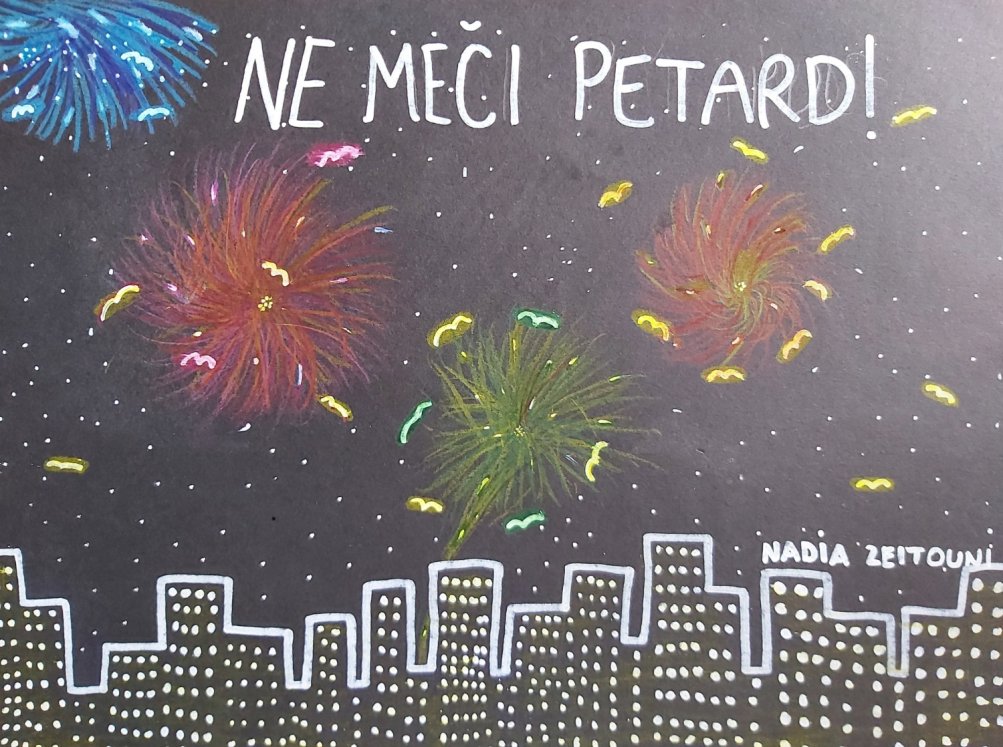 NE MEČI PETARD!
NADIA ZEITOUNI